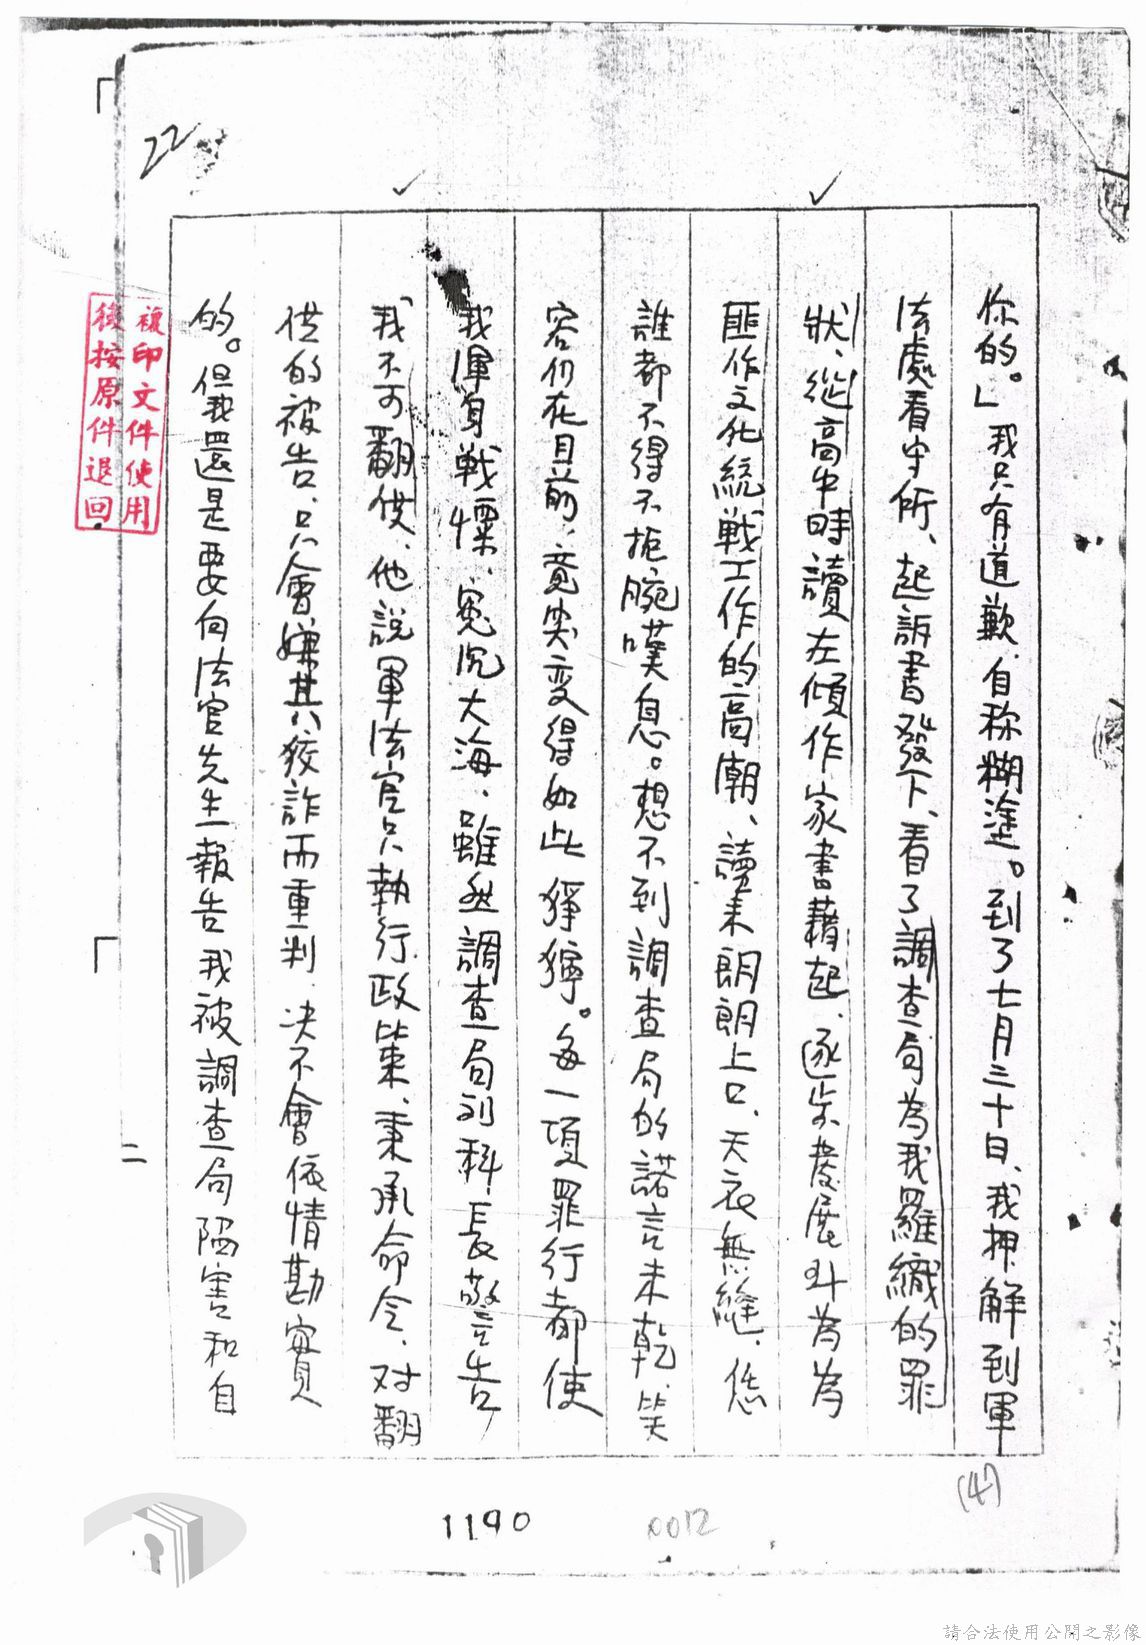 22
你的。」我只有道歉、自称糊塗。到了七月三十日、我押解到軍
法處看守所、起訴書發下、看了調查局為我羅織的罪
狀、從高中時讀左傾作家書藉起、逐步發展到為為
匪作文化統戰工作的高潮、讀來朗朗上口、天衣無縫、您
誰都不得不扼腕嘆息。想不到調查局的諾言未乾、笑
容仍在目前、竟突变得如此猙獰。每一項罪行都使
我渾身戰慄、冤沉大海、雖然調查局刘科長警告
我不可翻供、他說軍法官只執行政策、秉承命令、对翻
供的被告、只會嫌其狡詐而重判、决不會依情勘實
的。但我還是要向法官先生報告我被調查局陷害和自
複印文件使用
後按原件退回
二
(4)
1190
0012
請合法使用公開之影像